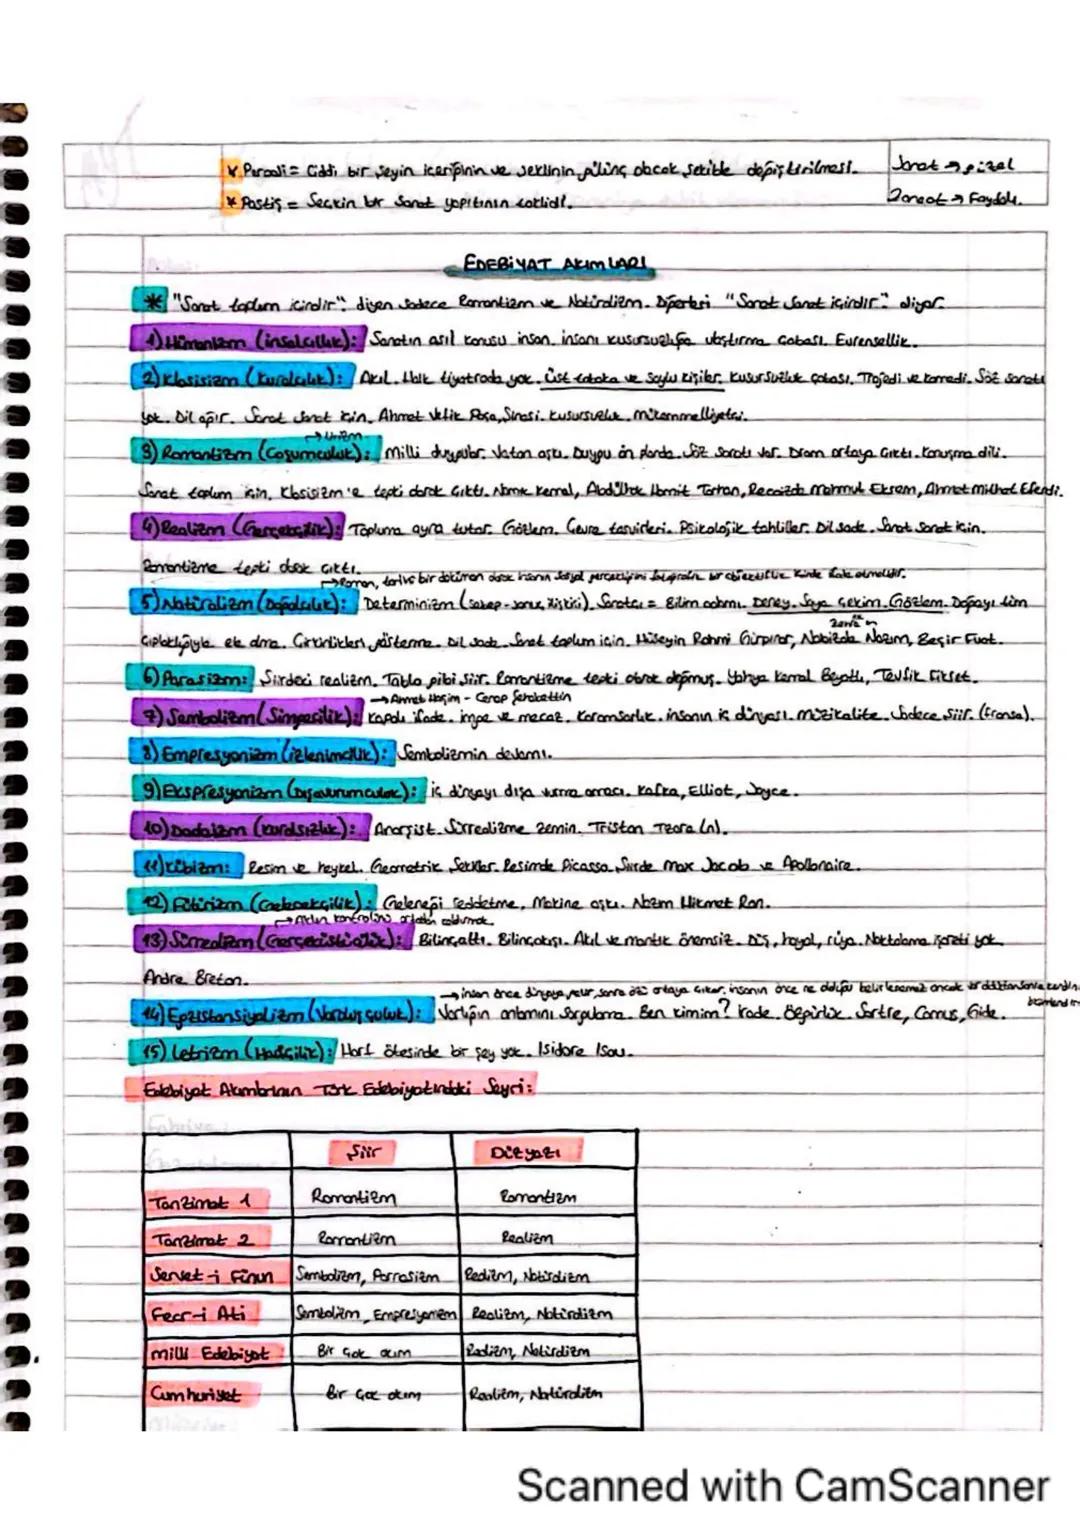 * Parodi = Ciddi bir şeyin içeriğinin ve şeklinin gülünç olacak şekilde değiştirilmesi.
* Pastiş = Seçkin bir sanat yapıtının taklidi.
Sanat → güzel
Zanaat → Faydalı.
EDEBİYAT AKIMLARI
* "Sanat toplum içindir" diyen sadece Romantizm ve Natüralizm. Diğerleri "Sanat sanat içindir" diyor.
1) Hümanizm (insalcıllık): Sanatın asıl konusu insan. insanı kusursuzluğa ulaştırma çabası. Evrensellik.
2) Klasisizm (Kuralcılık): Akıl. Halk tiyatroda yok. Üst tabaka ve Soylu kişiler. Kusursuzluk çabası. Trajedi ve komedi. Söz sanatı
yok. Dil ağır. Sanat sanat için. Ahmet Vefik Paşa, Şinasi. Kusursuzluk. Mükemmelliyetçi.
3) Romantizm (Coşumculuk): Milli duygular. Vatan aşkı. Duygu ön planda. Söz sanatı var. Dram ortaya çıktı. Konuşma dili.
Sanat toplum için. Klasisizm'e tepki olarak çıktı. Namık Kemal, Abdülhak Hamit Tarhan, Recaizde Mahmut Ekrem, Ahmet Mithat Efendi.
4) Realizm (Gerçekçilik): Topluma ayna tutar. Gözlem. Çevre tasvirleri. Psikolojik tahliller. Dil sade. Sanat sanat için.
Romantizme tepki olarak çıktı.
→ Roman, tarihi bir doküman olarak insanın sosyal gerçekliğini bir objektiflik içinde olmalıdır.
5) Natüralizm (Doğalcılık): Determinizm (sebep-sonuç ilişkisi). Sanatçı = Bilim adamı. Deney. Soya çekim. Gözlem. Doğayı tüm
çıplaklığıyla ele alma. Çirkinlikleri gösterme. Dil sade. Sanat toplum için. Hüseyin Rahmi Gürpınar, Nabizade Nazım, Beşir Fuat.
6) Parasizm: Şiirdeki realizm. Tablo gibi şiir. Romantizme tepki olarak doğmuş. Yahya Kemal Beyatlı, Tevfik Fikret.
→ Ahmet Haşim - Cenap Şehabettin
7) Sembolizm (Simgecilik): Kapalı ifade. imge ve mecaz. Karamsarlık. insanın iç dünyası. Müzikalite. Sadece şiir. (Fransa).
8) Empresyonizm (izlenimcilik): Sembolizmin devamı.
9) Ekspresyonizm (Dışavurumculuk): iç dünyayı dışa vurma aracı. Kafka, Elliot, Joyce.
10) Dadaizm (kuralsızlık): Anarşist. Sürrealizme zemin. Tristan Tzara (n).
11) Kübizm: Resim ve heykel. Geometrik Şekiller. Resimde Picasso. Şiirde Max Jacob ve Apollonaire.
12) Fütürizm (Gelecekçilik): Geleneği reddetme, Makine aşkı. Nazım Hikmet Ran.
→ Aklın kontrolünü ortadan kaldırmak.
13) Sürrealizm (Gerçeküstücülük): Bilinçaltı. Bilinçakışı. Akıl ve mantık önemsiz. Düş, hayal, rüya. Noktalama işareti yok.
Andre Breton.
→ insan önce dünyaya gelir, sonra özü ortaya çıkar. insanın önce ne olduğu belirlenemez ancak
14) Egzistansiyalizm (Varoluşçuluk): Varlığın anlamını Sorgulama. Ben kimim? İrade. Özgürlük. Sartre, Camus, Gide.
15) Letrizm (Harfçilik): Harf ötesinde bir şey yok. Isidore Isou.
Edebiyat Akımlarının Türk Edebiyatındaki Seyri:
Şiir Düzyazı
Tanzimat 1 Romantizm Romantizm
Tanzimat 2 Romantizm Realizm
Servet-i Fünun Sembolizm, Parrasizm Realizm, Natüralizm
Fecr-i Ati Sembolizm, Empresyonizm Realizm, Natüralizm
Milli Edebiyat Bir çok akım Realizm, Natüralizm
Cumhuriyet Bir çok akım Realizm, Natüralizm
Scanned with CamScanner